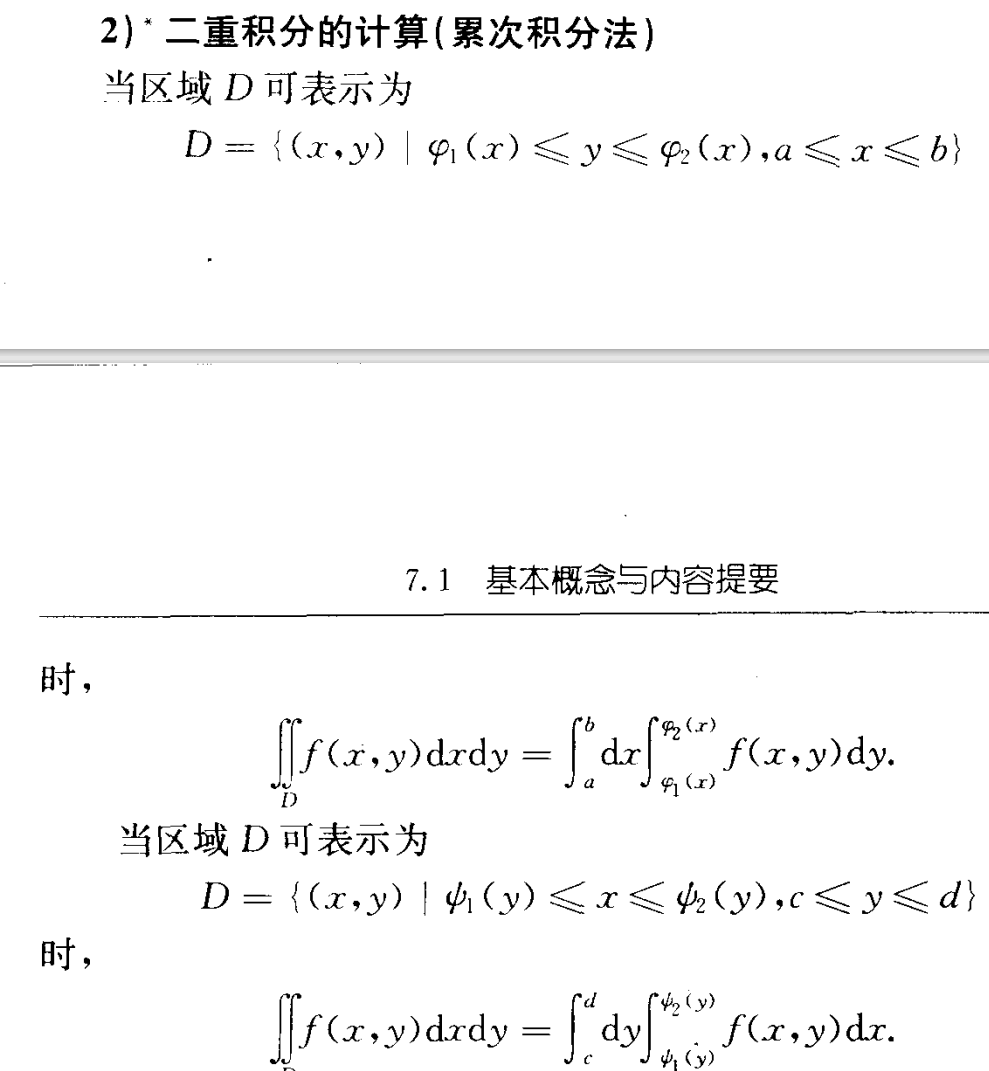 2)* 二重积分的计算(累次积分法)
当区域 D 可表示为
D = {(x,y) | φ₁(x) ⩽ y ⩽ φ₂(x),a ⩽ x ⩽ b}
7.1 基本概念与内容提要
时,
∬_D f(x,y)dxdy = ∫_a^b dx∫_{φ₁(x)}^{φ₂(x)} f(x,y)dy.
当区域 D 可表示为
D = {(x,y) | ψ₁(y) ⩽ x ⩽ ψ₂(y),c ⩽ y ⩽ d}
时,
∬_D f(x,y)dxdy = ∫_c^d dy∫_{ψ₁(y)}^{ψ₂(y)} f(x,y)dx.